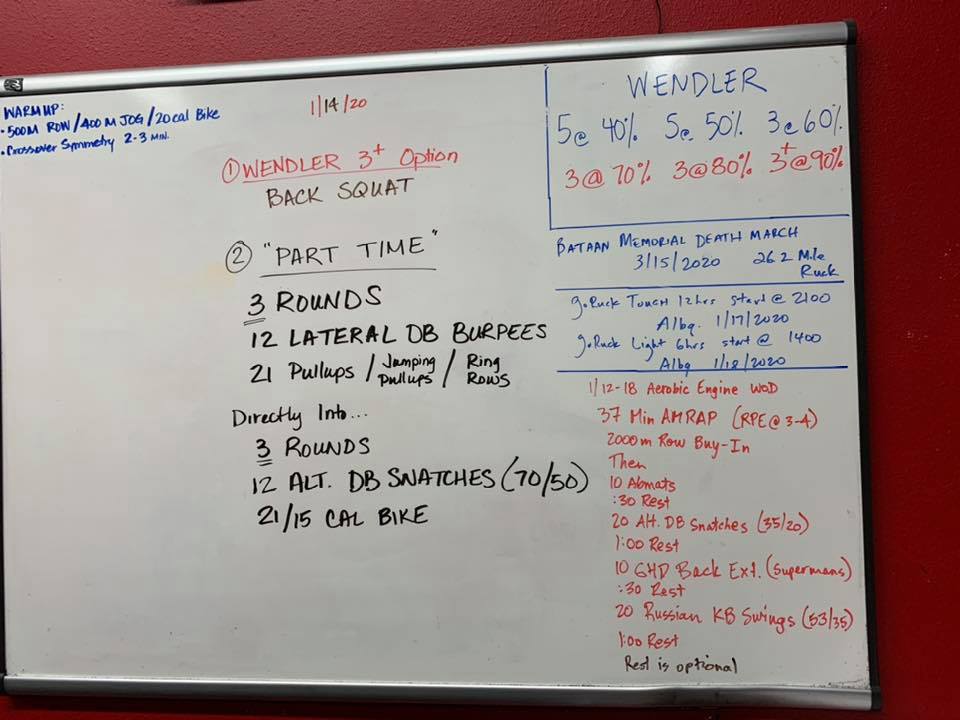 WARMUP:
• 500M ROW / 400 M JOG / 20 cal Bike
• Crossover Symmetry 2-3 MIN.
1/14/20
① WENDLER 3+ Option
BACK SQUAT
② "PART TIME"
3 ROUNDS
12 LATERAL DB BURPEES
21 Pullups / Jumping Pullups / Ring Rows
Directly Into...
3 ROUNDS
12 ALT. DB SNATCHES (70/50)
21/15 CAL BIKE
WENDLER
5@ 40% 5@ 50% 3@ 60%
3@ 70% 3@ 80% 3+@ 90%
BATAAN MEMORIAL DEATH MARCH
3/15/2020 26.2 Mile
Ruck
go.Ruck Tough 12hrs start @ 2100
Albq. 1/17/2020
go.Ruck Light 6hrs start @ 1400
Albq 1/18/2020
1/12-18 Aerobic Engine WOD
37 Min AMRAP (RPE@ 3-4)
2000m Row Buy-In
Then
10 Abmats
:30 Rest
20 Alt. DB Snatches (35/20)
1:00 Rest
10 GHD Back Ext. (Supermans)
:30 Rest
20 Russian KB Swings (53/35)
1:00 Rest
Rest is optional